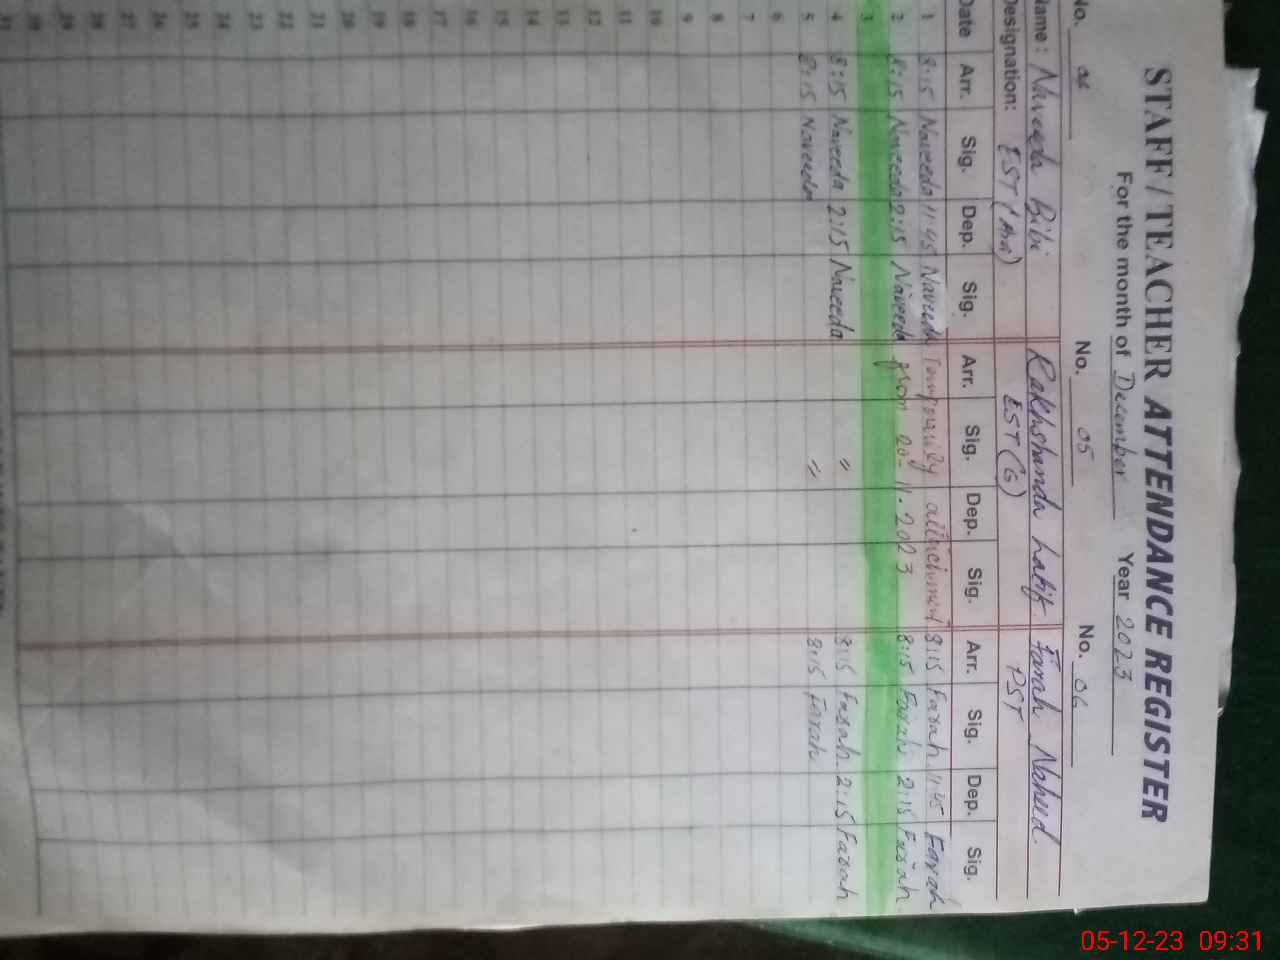 STAFF / TEACHER ATTENDANCE REGISTER
For the month of December Year 2023
No. No. 05 No. 06
Name: Naveeda Bibi Rakhshanda Latif Farah Naheed
Designation: EST (Arb) EST (G) PST
Date Arr. Sig. Dep. Sig. Arr. Sig. Dep. Sig. Arr. Sig. Dep. Sig.
1 8:15 Naveeda 11:45 Naveeda 8:15 Farah 11:45 Farah
2 8:15 Naveeda 2:15 Naveeda from 20-11-2023 8:15 Farah 2:15 Farah
3
4 8:15 Naveeda 2:15 Naveeda " 8:15 Farah 2:15 Farah
5 8:15 Naveeda " 8:15 Farah
6
7
8
9
10
11
12
13
14
15
16
17
18
19
20
21
22
23
24
25
26
27
28
29
30
31
05-12-23 09:31